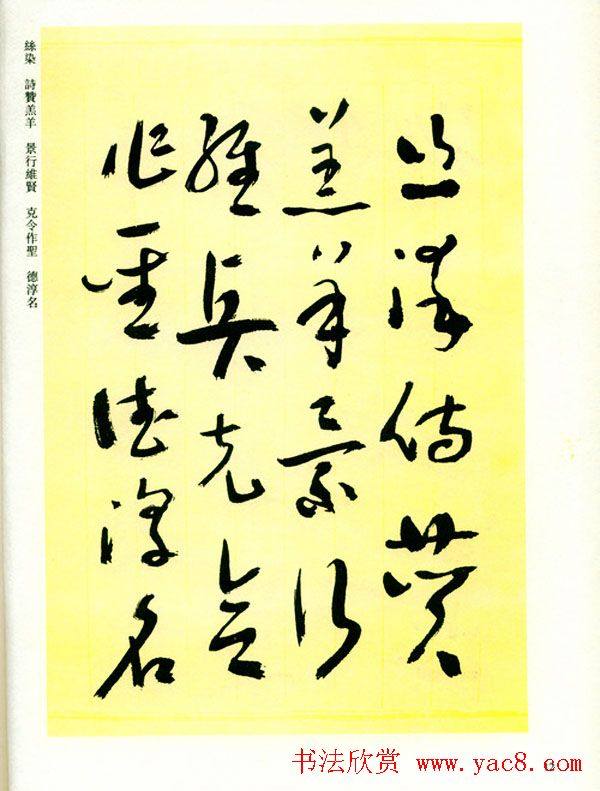 絲染詩贊
羔羊景行
維賢克念
作聖德淳名
絲染　詩贊羔羊　景行維賢　克令作聖　德淳名
书法欣赏 www.yac8.com